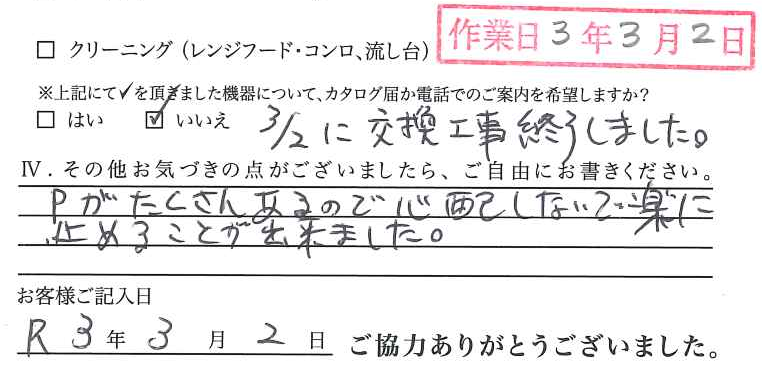 作業日3年3月2日
□ クリーニング (レンジフード・コンロ、流し台)
※上記にて✓を頂きました機器について、カタログ届か電話でのご案内を希望しますか?
□ はい ☑ いいえ 3/2に交換工事終了しました。
Ⅳ.その他お気づきの点がございましたら、ご自由にお書きください。
Pがたくさんあるので心配しないで楽に
止めることが出来ました。
お客様ご記入日
R 3 年 3 月 2 日 ご協力ありがとうございました。